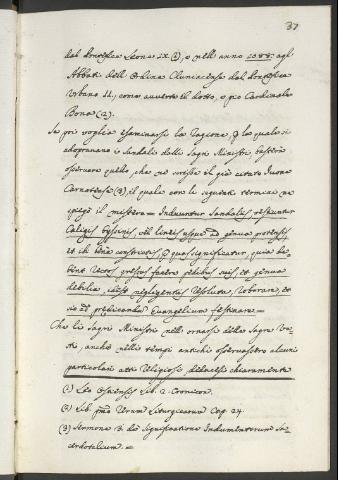 37
dal Pontefice Leone IX. (1), o nell' anno 1088. agl
Abbati dell' Ordine Cluniacense dal Pontefice
Urbano II., come avverte il dotto, e pio Cardinale
Bona (2).
Se poi voglia esaminarsi la ragione, per la quale si
adoprano i Sandali dalli Sagri Ministri, basterà
osservare quello, che ne scrisse il già citato Ivone
Carnotense (3), il quale con le seguenti termini ne
spiegò il mistero = Induuntur Sandaliis, vestiuntur
Caligis byssinis, vel lineis usque ad genua protensis
et ibi bene constrictis per quos significatur, quia de-
bent rectos gressos facere pedibus suis, et genua
debilia, idest negligentiis resoluta, roborare, et
sic ad praedicandum Evangelium festinare =
Che li Sagri Ministri nell' ornarsi delle Sagre Ve-
sti, anche nelli tempi antichi osservassero alcuni
particolari atti Religiosi chiaramente
(1) Leo Ostiensis Lib. 2. Cronicon.
(2) Lib. pmo Rerum Liturgicarum Cap. 24.
(3) Sermone 3. de Significatione Indumentorum Sa-
cerdotalium. =